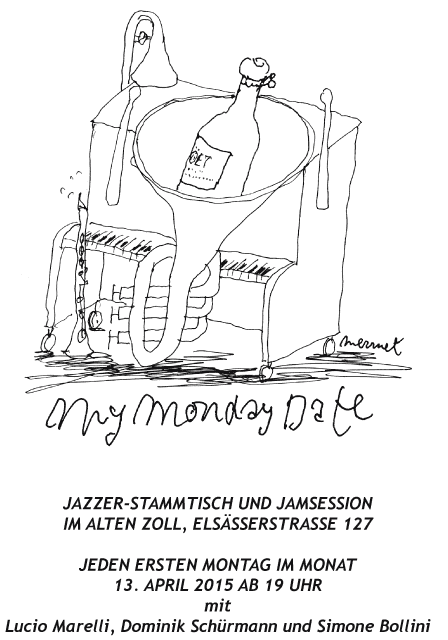 OET
mermet
My Monday Date
JAZZER-STAMMTISCH UND JAMSESSION
IM ALTEN ZOLL, ELSÄSSERSTRASSE 127
JEDEN ERSTEN MONTAG IM MONAT
13. APRIL 2015 AB 19 UHR
mit
Lucio Marelli, Dominik Schürmann und Simone Bollini